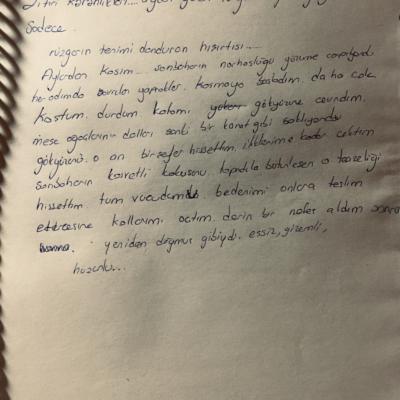 Zifiri karanlıktı...
Sadece
rüzgarın tenimi donduran hışırtısı...
Aylardan Kasım... sonbaharın narhoşluğu yüzüme çarpıyordu
her adımda yapraklar. koşmaya başladım. daha çok
koştum. durdum. kafamı gökyüzüne çevirdim.
meşe ağaçlarının dalları sanki bir kanat gibi saklıyordu
gökyüzünü. o an bir nefes hissettim. iliklerime kadar çektim
sonbaharın kasvetli kokusunu. toprakla bütünleşen o tazeliği
hissettim. tüm vücudumla bedenimi onlara teslim
edercesine kollarımı açtım. derin bir nefes aldım sonra
yeniden doğmuş gibiydi. eşsiz, gizemli,
hüzünlü...